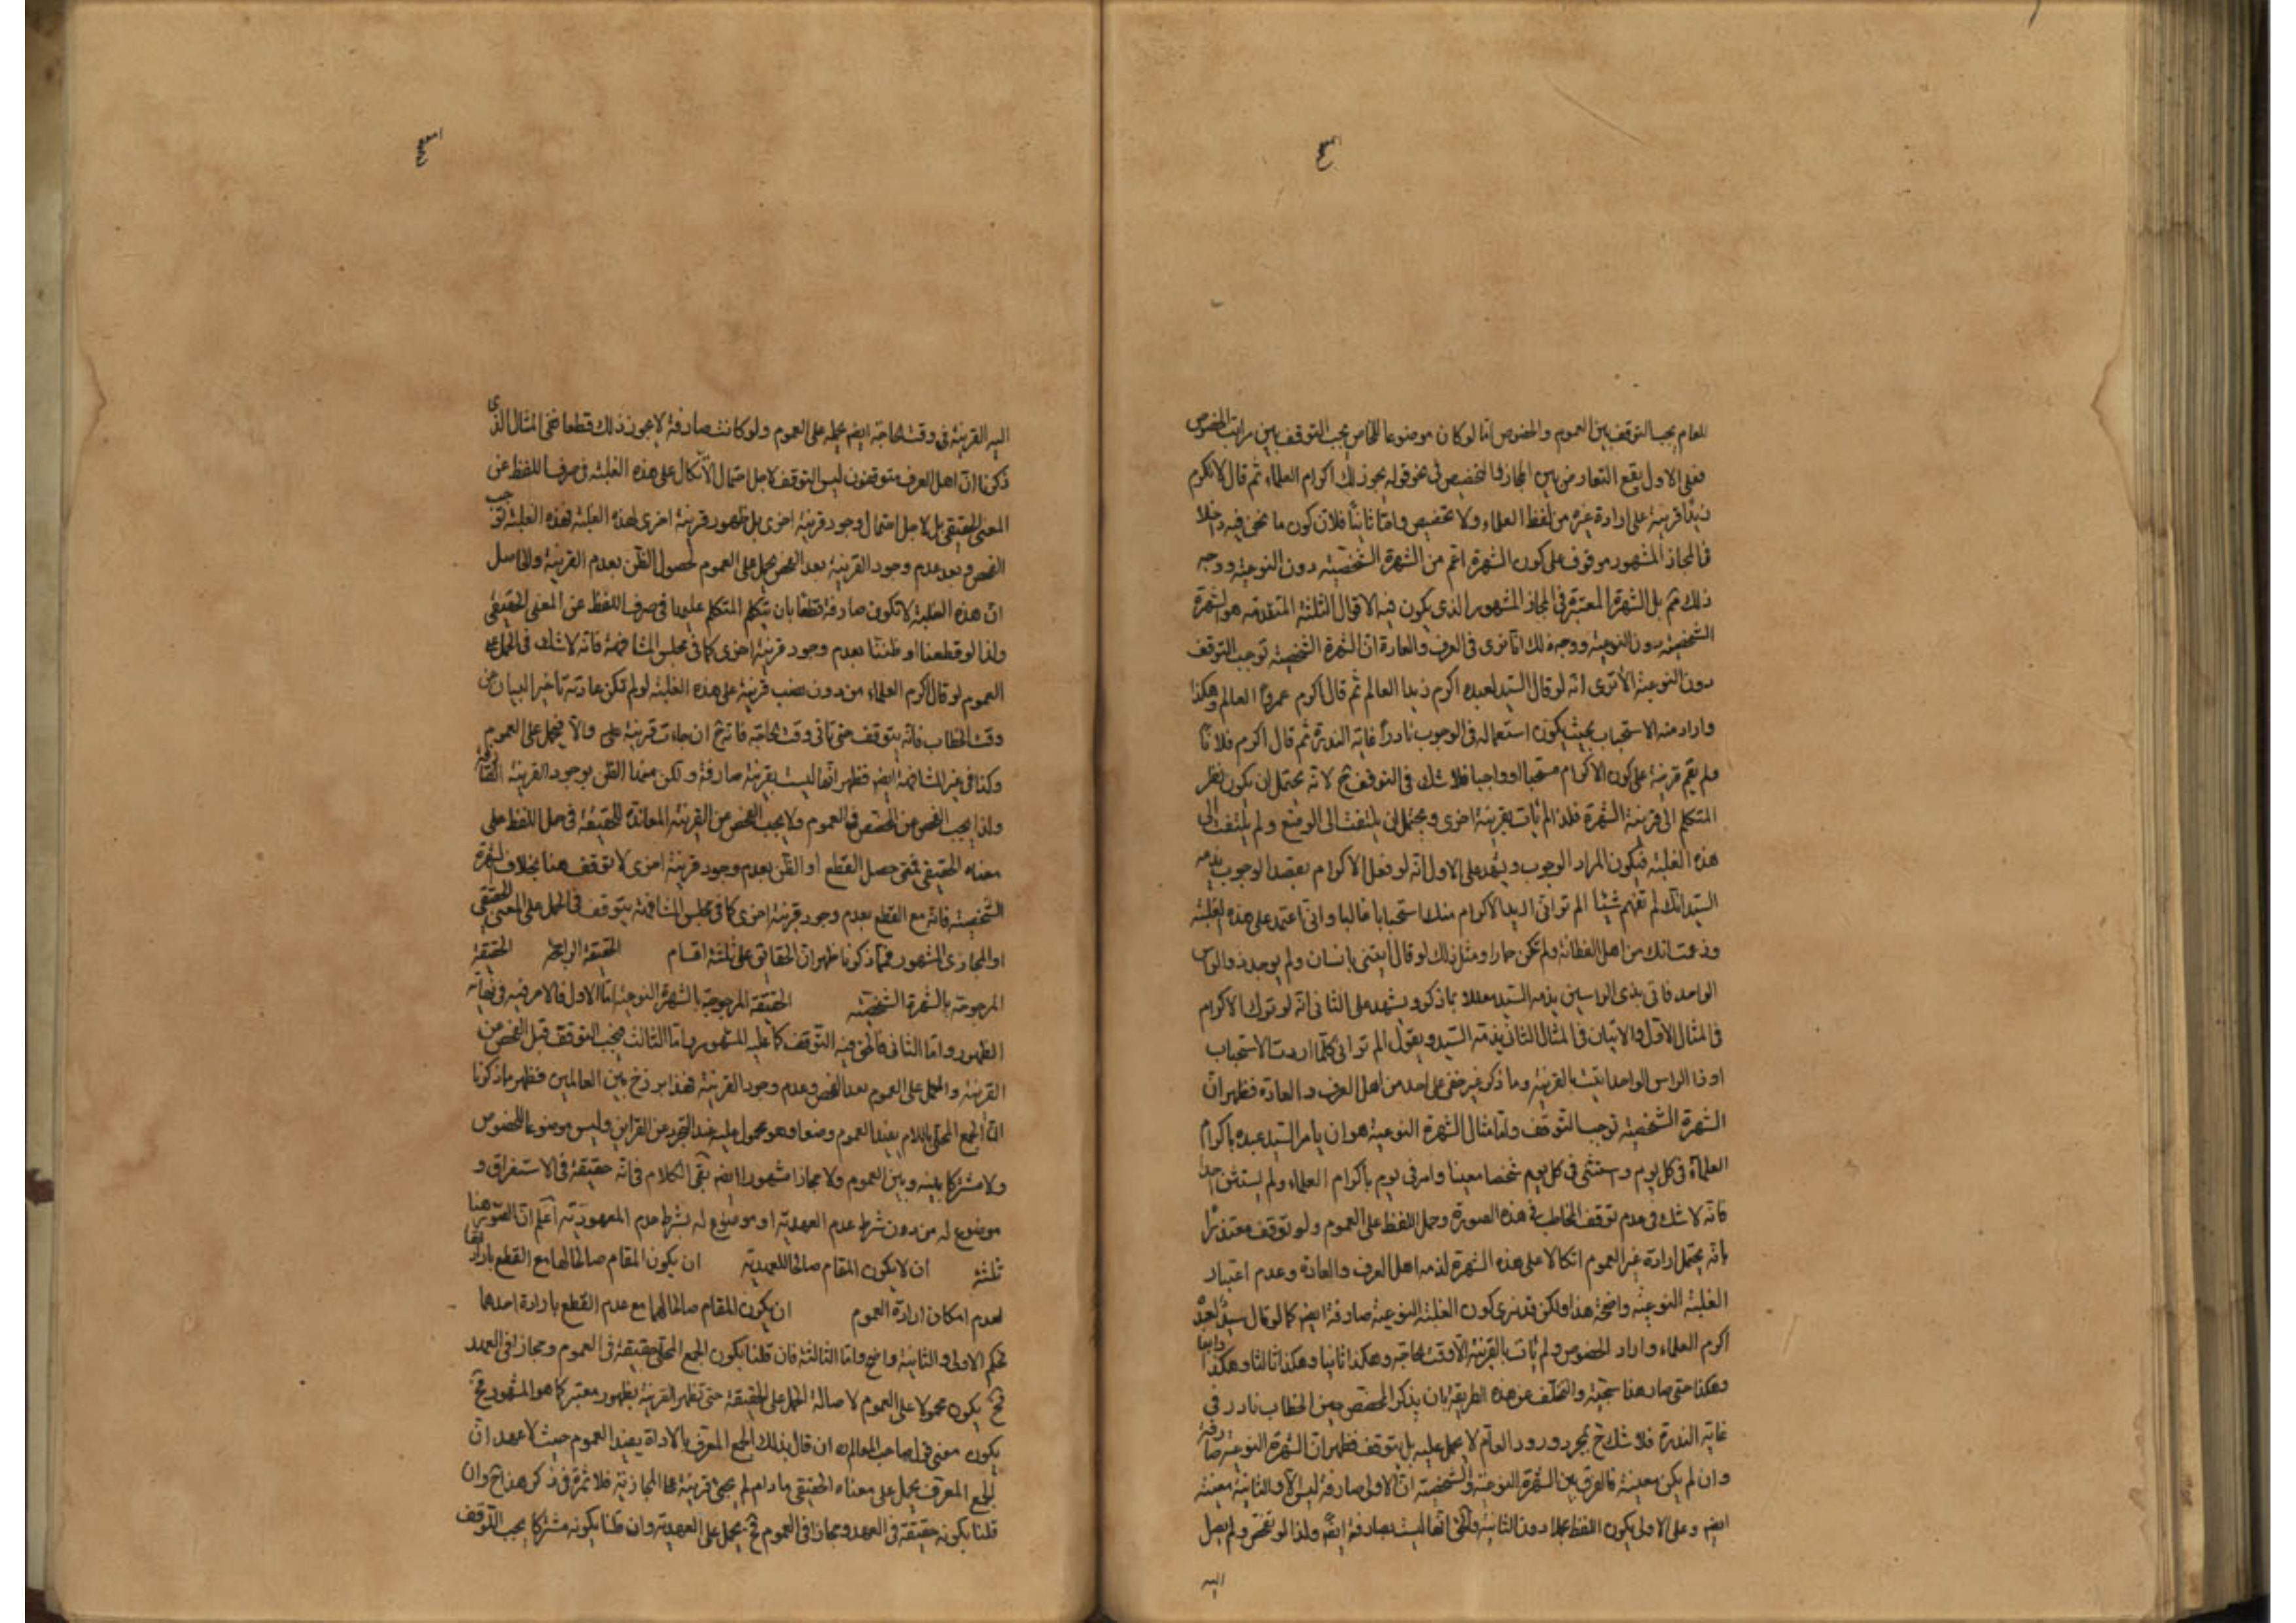 للعام يجب التوقف بين العموم والخصوص اما لو كان موضوعا للخاص يجب التوقف بين مراتب الخصوص
فعلى الاول يقع التعارض بين المجاز والتخصيص في نحو قوله يجوز لك اكرام العلماء ثم قال لا تكرم
زيدا قرينة على ارادة غيره من لفظ العلماء ولا تخصيص واما ثانيا فلان كون ما نحن فيه داخلا
في المجاز المشهور موقوف على كون الشهرة اعم من الشهرة الشخصية دون النوعية ووجه
ذلك ثم بل الشهرة المعتبرة في المجاز المشهور الذي يكون فيه الاقوال الثلثة المتقدمة هو الشهرة
الشخصية دون النوعية ووجه ذلك انا نرى في العرف والعادة ان الشهرة الشخصية توجب التوقف
دون النوعية الا ترى انه لو قال السيد لعبده اكرم زيدا العالم ثم قال اكرم عمروا العالم وهكذا
واراد منه الاستحباب بحيث يكون استعماله في الوجوب نادرا غاية الندرة ثم قال اكرم فلانا
ولم يقم قرينة على كون الاكرام مستحبا او واجبا فلا شك في التوقف ح لانه يحتمل ان يكون نظر
المتكلم الى قرينة الشهرة فلذا لم يات بقرينة اخرى ويحتمل ان يلتفت الى الوضع ولم يلتفت الى
هذه الغلبة فيكون المراد الوجوب ويشهد على الاول انه لو فعل الاكرام بقصد الوجوب يذمه
السيد انك لم تفهم شيئا الم تر انى اريد الاكرام منك استحبابا غالبا وانى اعتمد على هذه الغلبة
وزعمت انك من اهل الفطانة ولم تكن حمارا ومثل ذلك لو قال ايتنى بانسان ولم يوجد ذو الراس
الواحد فاتى بذى الراسين يذمه السيد معللا بما ذكر ويشهد على الثانى انه لو ترك الاكرام
في المثال الاول والاتيان في المثال الثانى يذمه السيد ويقول الم تر انى كلما اردت الاستحباب
او ذا الراس الواحد اتيت بالقرينة وما ذكر غير خفى على احد من اهل العرف والعادة فظهر ان
الشهرة الشخصية توجب التوقف واما مثال الشهرة النوعية هو ان يامر السيد عبده باكرام
العلماء في كل يوم ويستثنى في كل يوم شخصا معينا وامر في يوم باكرام العلماء ولم يستثن احدا
فانه لا شك في عدم توقف المخاطب في هذه الصورة وحمل اللفظ على العموم ولو توقف معتذرا
بانه يحتمل ارادة غير العموم اتكالا على هذه الشهرة لذمه اهل العرف والعادة وعدم اعتبار
الغلبة النوعية واضحة هذا ولكن قد نرى كون الغلبة النوعية صادفة ايضا كما لو قال سيد لعبده
اكرم العلماء واراد الخصوص ولم يات بالقرينة الا وقت الحاجة وهكذا ثانيا وهكذا ثالثا وهكذا رابعا
وهكذا حتى صار هنا سجية والتخلف عن هذه الطريقة بان يذكر المخصص حين الخطاب نادر في
غاية الندرة فلا شك ح بمجرد ورود العام لا يحمل عليه بل يتوقف فظهر ان الشهرة النوعية صارفة
وان لم يكن معينة فالفرق بين الشهرة النوعية والشخصية ان الاولى صارفة ليس الا والثانية معينة
ايضا وعلى الاولى يكون اللفظ مجملا دون الثانية والحق انها ليست بصارفة ايضا ولذا لو تفحص ولم يصل
اليه
اليه القرينة في وقت الحاجة ايضا يحمله على العموم ولو كانت صارفة لا يجوز ذلك قطعا ففي المثال الذي
ذكرنا ان اهل العرف متوقفون ليس التوقف لاجل احتمال الاتكال على هذه الغلبة في صرف اللفظ عن
المعنى الحقيقي بل لاجل احتمال وجود قرينة اخرى بل ظهور قرينة اخرى لهذه الغلبة فهذه الغلبة توجب
الفحص وبعد عدم وجود القرينة بعد الفحص يحمل على العموم لحصول الظن بعدم القرينة والحاصل
ان هذه الغلبة لا تكون صارفة قطعا بان يتكل المتكلم عليها في صرف اللفظ عن المعنى الحقيقي
ولذا لو قطعنا او ظننا بعدم وجود قرينة اخرى كما في مجلس المشافهة فانه لا شك في الحمل على
العموم لو قال اكرم العلماء من دون نصب قرينة على هذه الغلبة لو لم تكن عادته تاخير البيان عن
وقت الخطاب فانه يتوقف حتى تاتى وقت الحاجة فا ترى ح ان جاءت قرينة على والا فيحمل على العموم
وكذا في غير المشافهة ايضا فظهر انها ليست بقرينة صارفة ولكن منشا الظن بوجود القرينة الصارفة
ولذا يجب الفحص عن المخصص في العموم ولا يجب الفحص عن القرينة المعاندة للحقيقة في حمل اللفظ على
معناه الحقيقي فمتى حصل القطع او الظن بعدم وجود قرينة اخرى لا توقف هنا بخلاف الشهرة
الشخصية فانه مع القطع بعدم وجود قرينة اخرى كما في مجلس المشافهة يتوقف في الحمل على المعنى الحقيقي
او المجازى المشهور فمما ذكرنا ظهر ان الحقايق على ثلثة اقسام الحقيقة الراجحة الحقيقة
المرجوحة بالشهرة الشخصية الحقيقة المرجوحة بالشهرة النوعية اما الاول فالامر فيه في نهاية
الظهور واما الثانى فالحق فيه التوقف كما عليه المشهور واما الثالث فيجب التوقف قبل الفحص عن
القرينة والحمل على العموم بعد الفحص وعدم وجود القرينة فهذا برزخ بين العالمين فظهر مما ذكرنا
ان الجمع المحلى باللام يفيد العموم وضعا وهو محمول عليه عند التجرد عن القراين وليس موضوعا للخصوص
ولا مشتركا بينه وبين العموم ولا مجازا مشهورا ايضا بقى الكلام في انه حقيقة في الاستغراق و
موضوع له من دون شرط عدم العهدية او موضوع له بشرط عدم المعهودية اعلم ان الصور هنا
ثلثة ان لا يكون المقام صالحا للعهدية ان يكون المقام صالحا لها مع القطع بارادتها
لعدم امكان ارادة العموم ان يكون المقام صالحا لهما مع عدم القطع بارادة احدهما
فحكم الاولى والثانية واضح واما الثالثة فان قلنا بكون الجمع المحلى حقيقة في العموم ومجازا في العهد
فح يكون محمولا على العموم لاصالة الحمل على الحقيقة حتى تظهر القرينة بظهور معتبر كما هو المشهور فح
يكون معنى قول صاحب المعالم ره ان قال بذلك الجمع المعرف بالاداة يفيد العموم حيث لا عهد ان
الجمع المعرف يحمل على معناه الحقيقي ما دام لم يجئ قرينة على المجازية فلا ثمرة في ذكر هذا ح وان
قلنا بكونه حقيقة في العهد ومجازا في العموم فح يحمل على العهدية وان قلنا بكونه مشتركا يجب التوقف